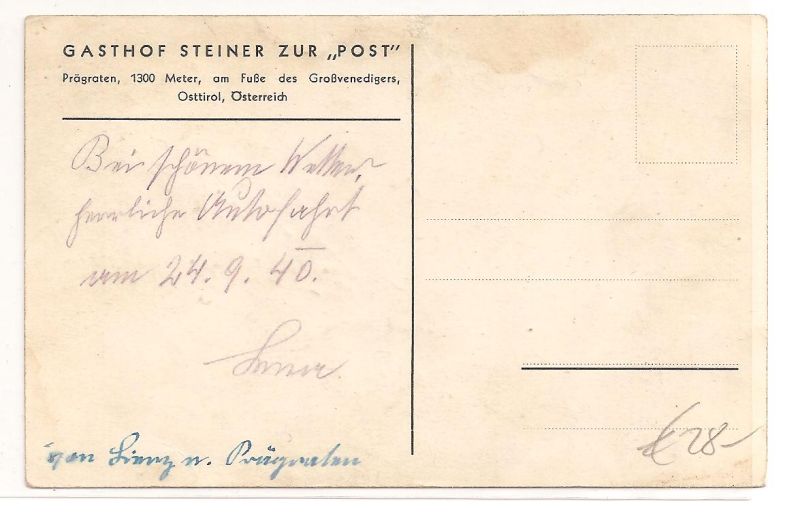 GASTHOF STEINER ZUR „POST"
Prägraten, 1300 Meter, am Fuße des Großvenedigers,
Osttirol, Österreich
Bei schönem Wetter,
herrliche Autofahrt
am 24. 9. 40.
von Lienz n. Prägraten
€ 28-